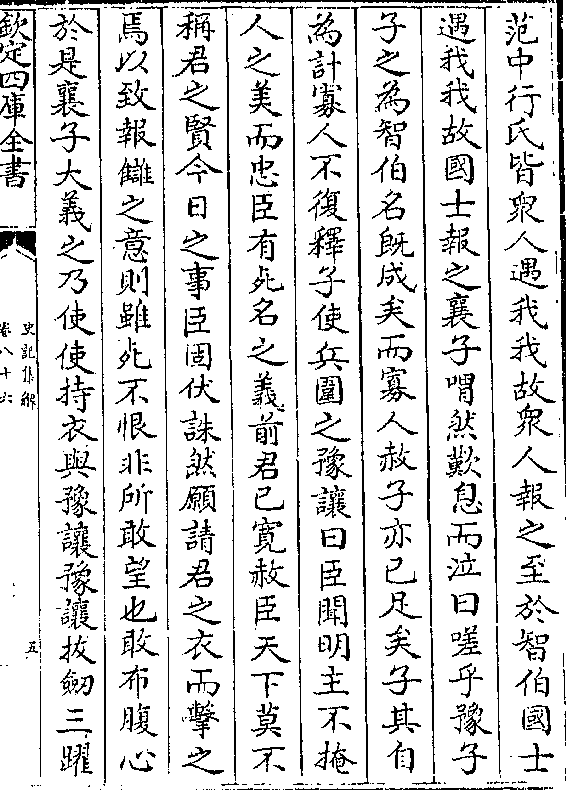 范中行氏皆衆人遇我我故衆人報之至於智伯國士
遇我我故國士報之襄子喟然歎息而泣曰嗟乎豫子
子之為智伯名既成矣而寡人赦子亦已足矣子其自
為計寡人不復釋子使兵圍之豫讓曰臣聞明主不掩
人之美而忠臣有死名之義前君已寛赦臣天下莫不
稱君之賢今日之事臣固伏誅然願請君之衣而擊之
焉以致報讎之意則雖死不恨非所敢望也敢布腹心
於是襄子大義之乃使使持衣與豫讓豫讓拔劒三躍
欽定四庫全書
史記集解
卷八十六
五